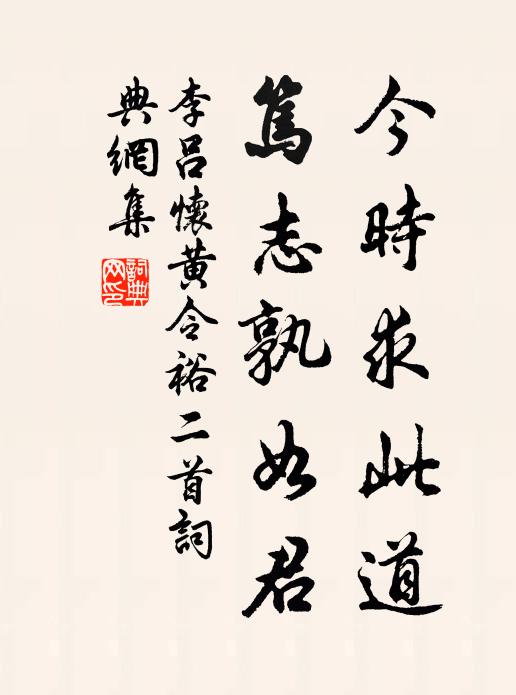 今時求此道
篤志孰如君
李呂懷黄令裕二首詞
典網集
詞典網印